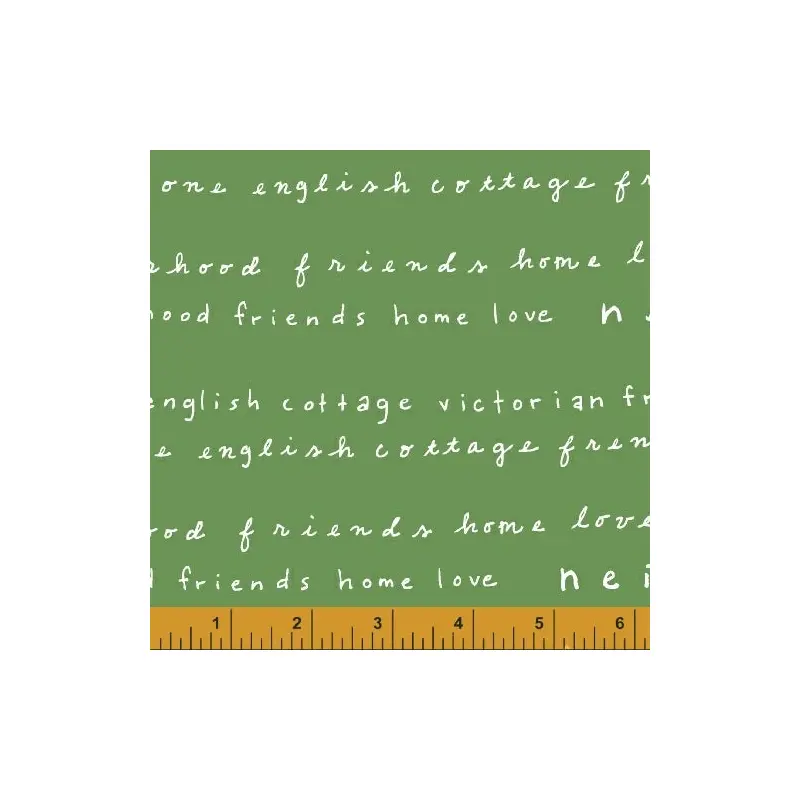 one english cottage fr
rhood friends home l
ood friends home love n
english cottage victorian fr
e english cottage fren
ood friends home love
friends home love nei
1 2 3 4 5 6